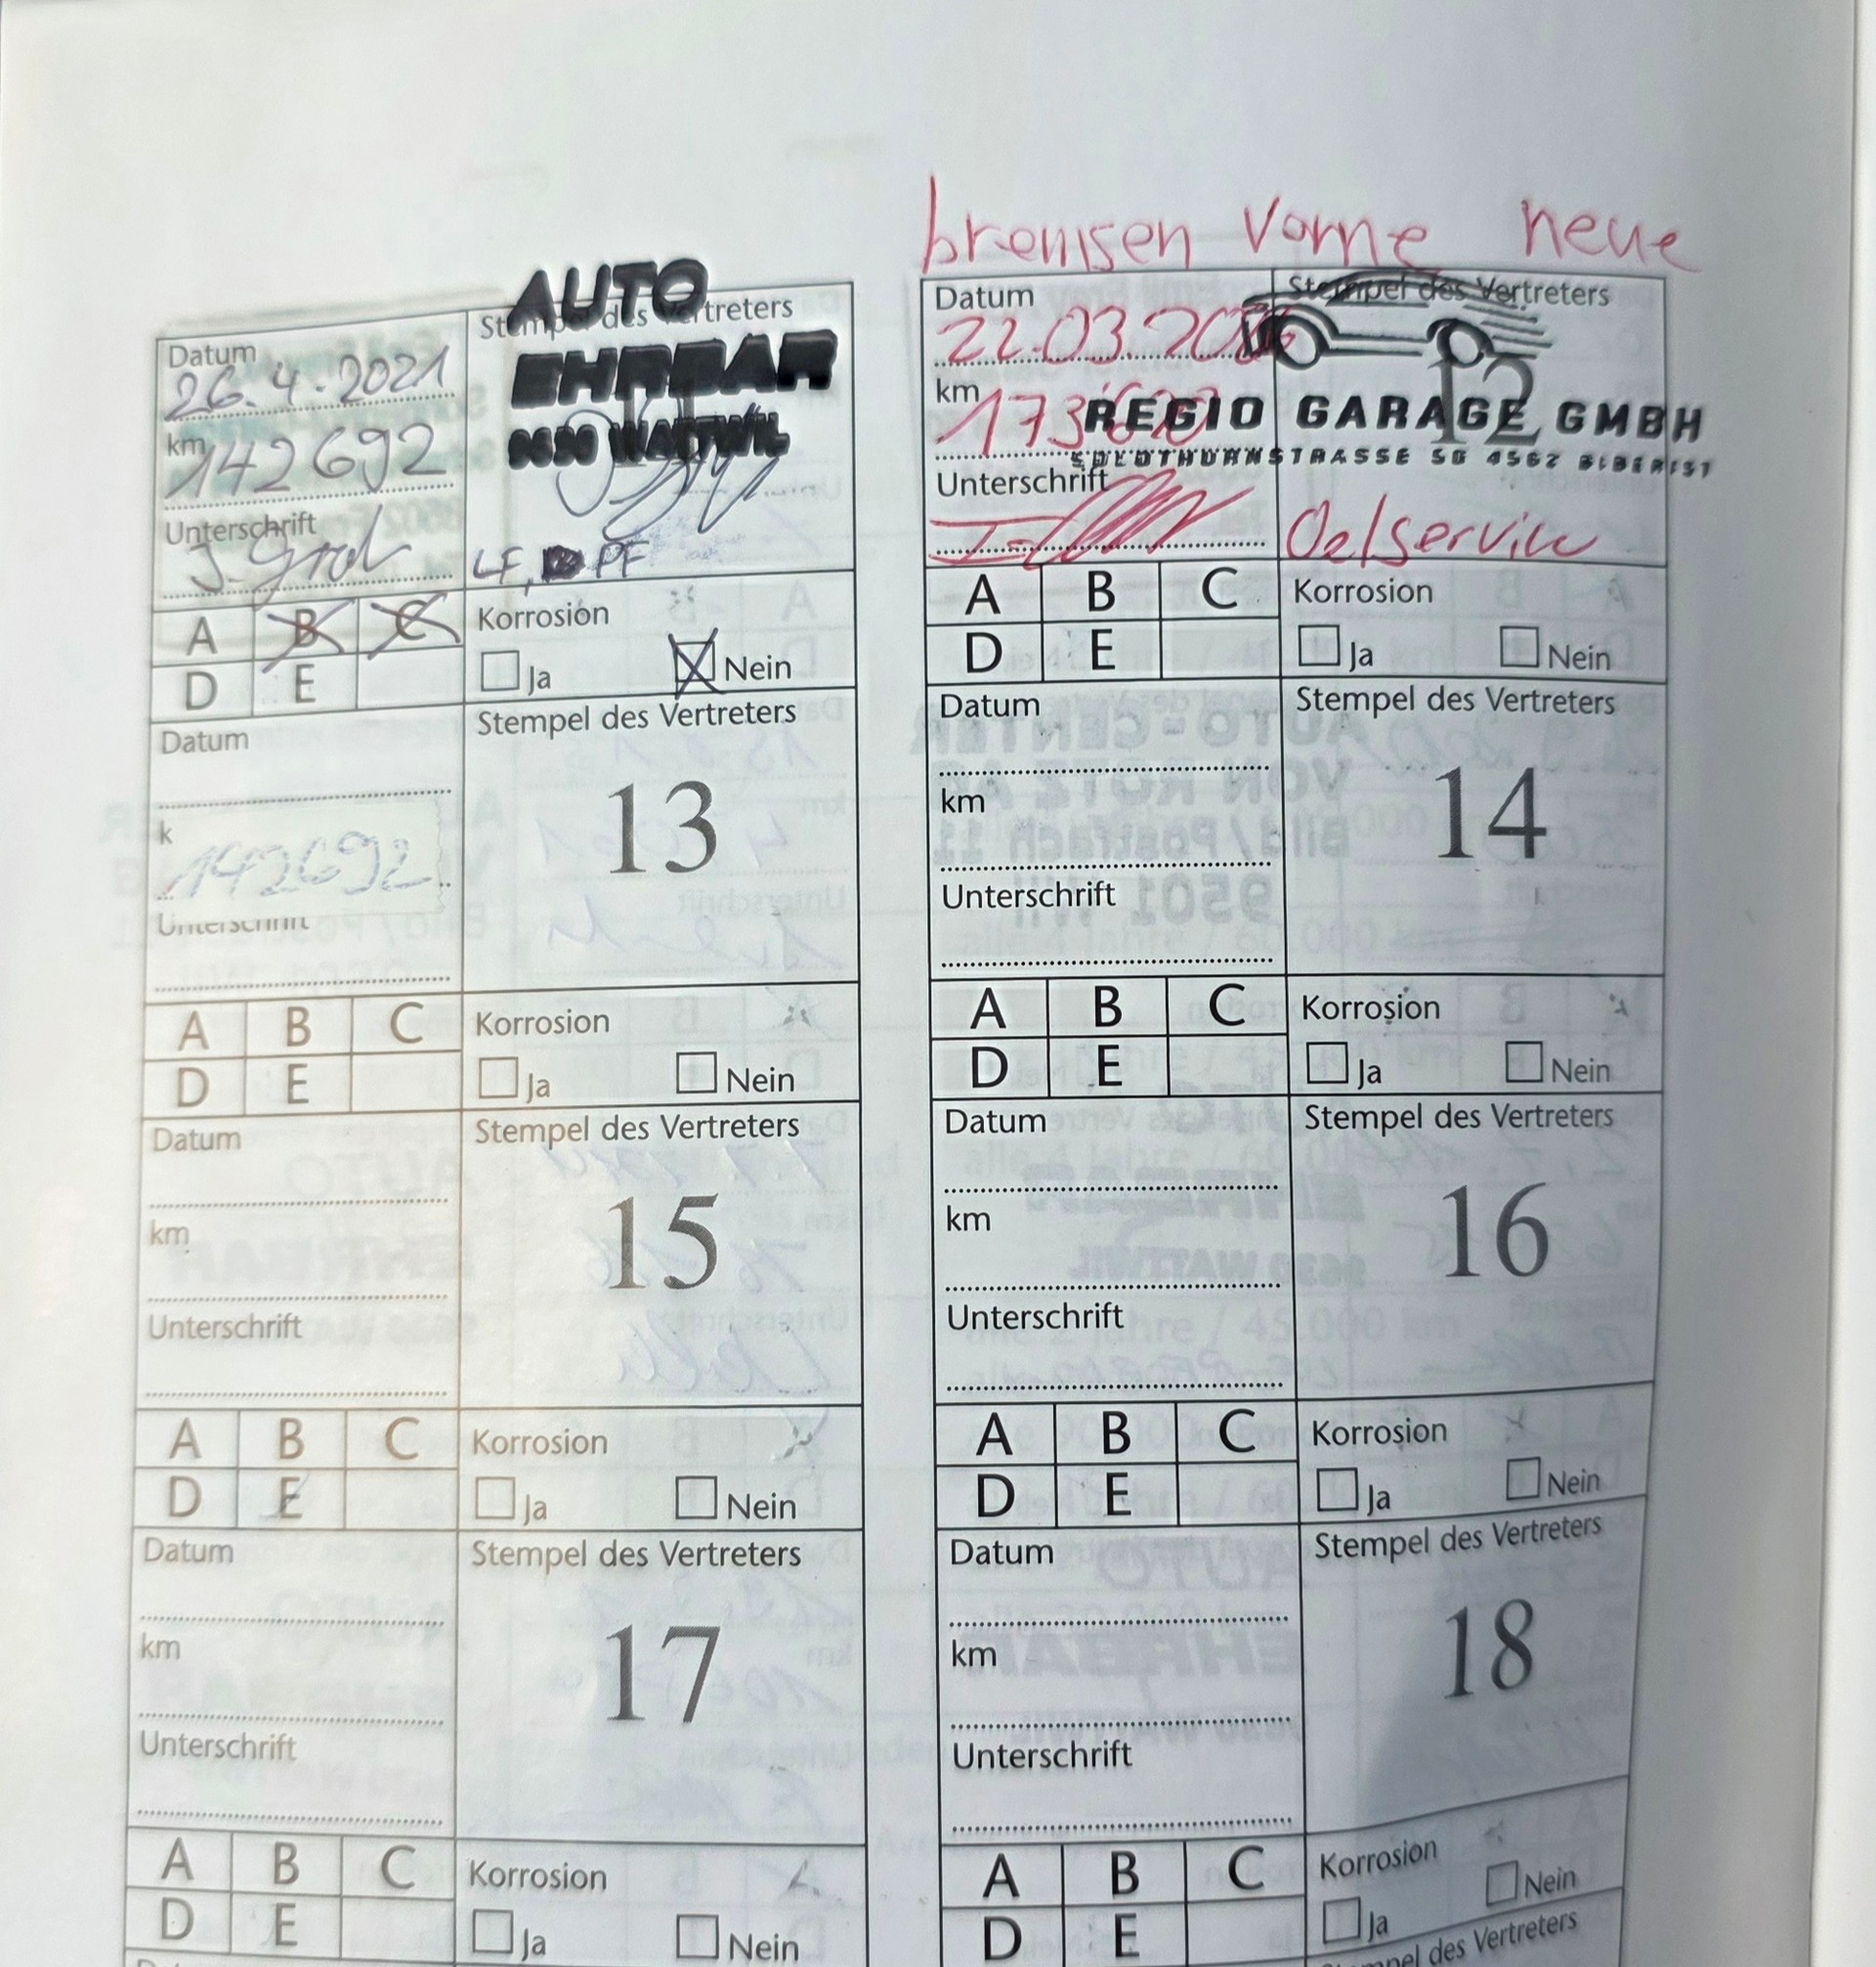 bremsen vorne neue
AUTO
EHRBAR
9630 WATTWIL
Datum
26.4.2021
km 142692
Unterschrift
J. Grob
Stempel des Vertreters
LF, PF
A B C
D E
Korrosion
Ja Nein
Datum
22.03.20
km 173'
Unterschrift
Stempel des Vertreters
12
REGIO GARAGE GMBH
SOLOTHURNSTRASSE 50 4562 BIBERIST
Oelservice
A B C
D E
Korrosion
Ja Nein
Datum
k
142692
Unterschrift
Stempel des Vertreters
13
A B C
D E
Korrosion
Ja Nein
Datum
km
Unterschrift
Stempel des Vertreters
14
A B C
D E
Korrosion
Ja Nein
Datum
km
Unterschrift
Stempel des Vertreters
15
A B C
D E
Korrosion
Ja Nein
Datum
km
Unterschrift
Stempel des Vertreters
16
A B C
D E
Korrosion
Ja Nein
Datum
km
Unterschrift
Stempel des Vertreters
17
A B C
D E
Korrosion
Ja Nein
Datum
km
Unterschrift
Stempel des Vertreters
18
A B C
D E
Korrosion
Ja Nein
mpel des Vertreters